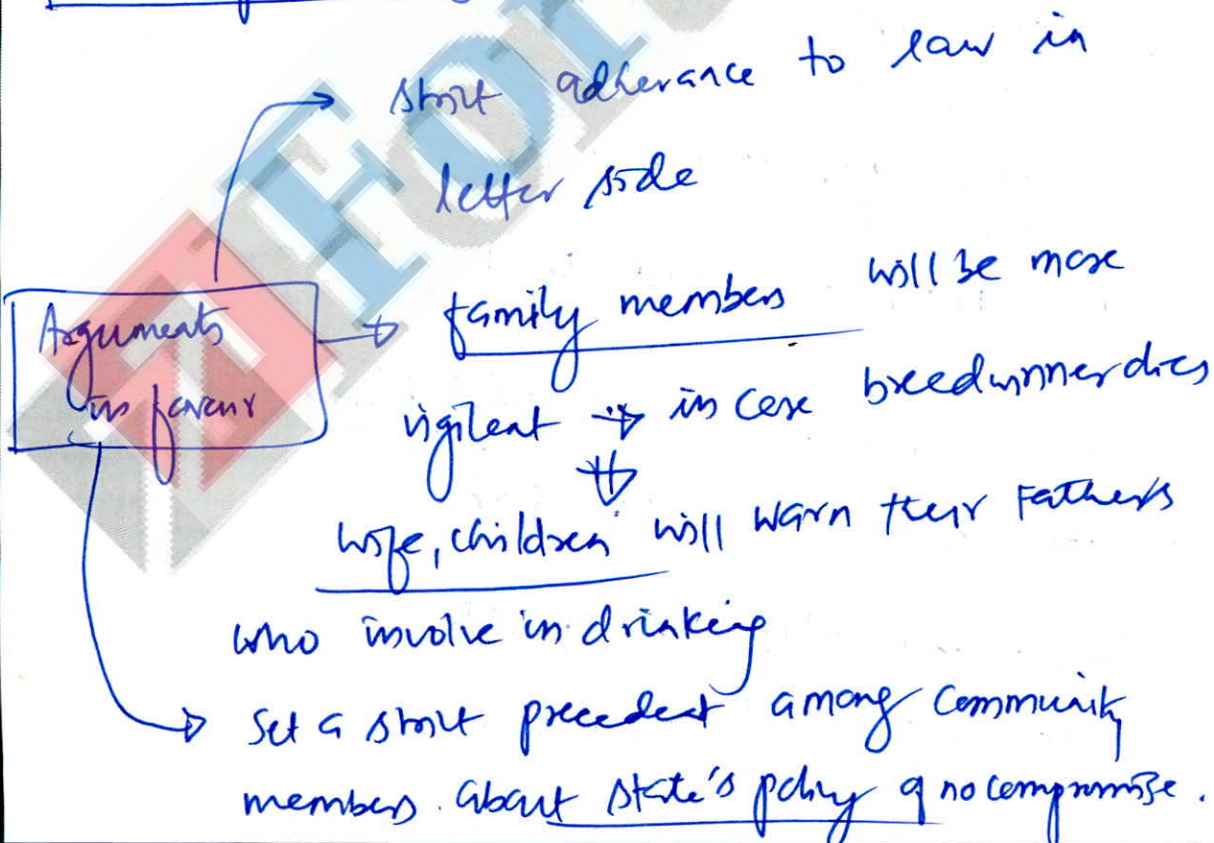 strict adherance to law in
letter side
Arguments
in favour
family members will be more
vigilent → in case breedwinner dies
wife, children will warn their Fathers
who involve in drinking
Set a strict precedent among Community
members about state's policy of no compromise.
For